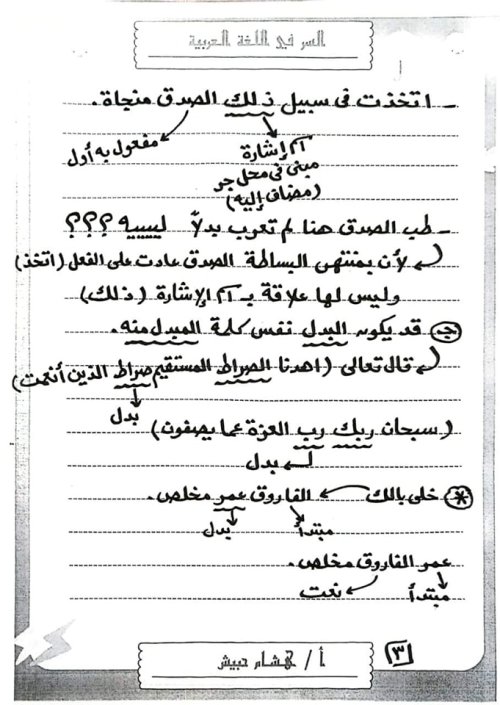 السر في اللغة العربية
- اتخذت فى سبيل ذلك الصدق منجاة.
مفعول به أول
اسم إشارة
مبنى فى محل جر
(مضاف إليه)
- طب الصدق هنا لم تعرب بدلاً ليييييه ؟؟؟
لأن بمنتهى البساطة الصدق عادت على الفعل (اتخذ)
وليس لها علاقة بـ اسم الإشارة (ذلك)
جـ قد يكون البدل نفس كلمة المبدل منه.
قال تعالى (اهدنا الصراط المستقيم صراط الذين أنعمت)
بدل
(سبحان ربك رب العزة عما يصفون)
بدل
* خلى بالك الفاروق عمر مخلص.
مبتدأ بدل
عمر الفاروق مخلص.
مبتدأ نعت
أ / هشام حبيش
٣